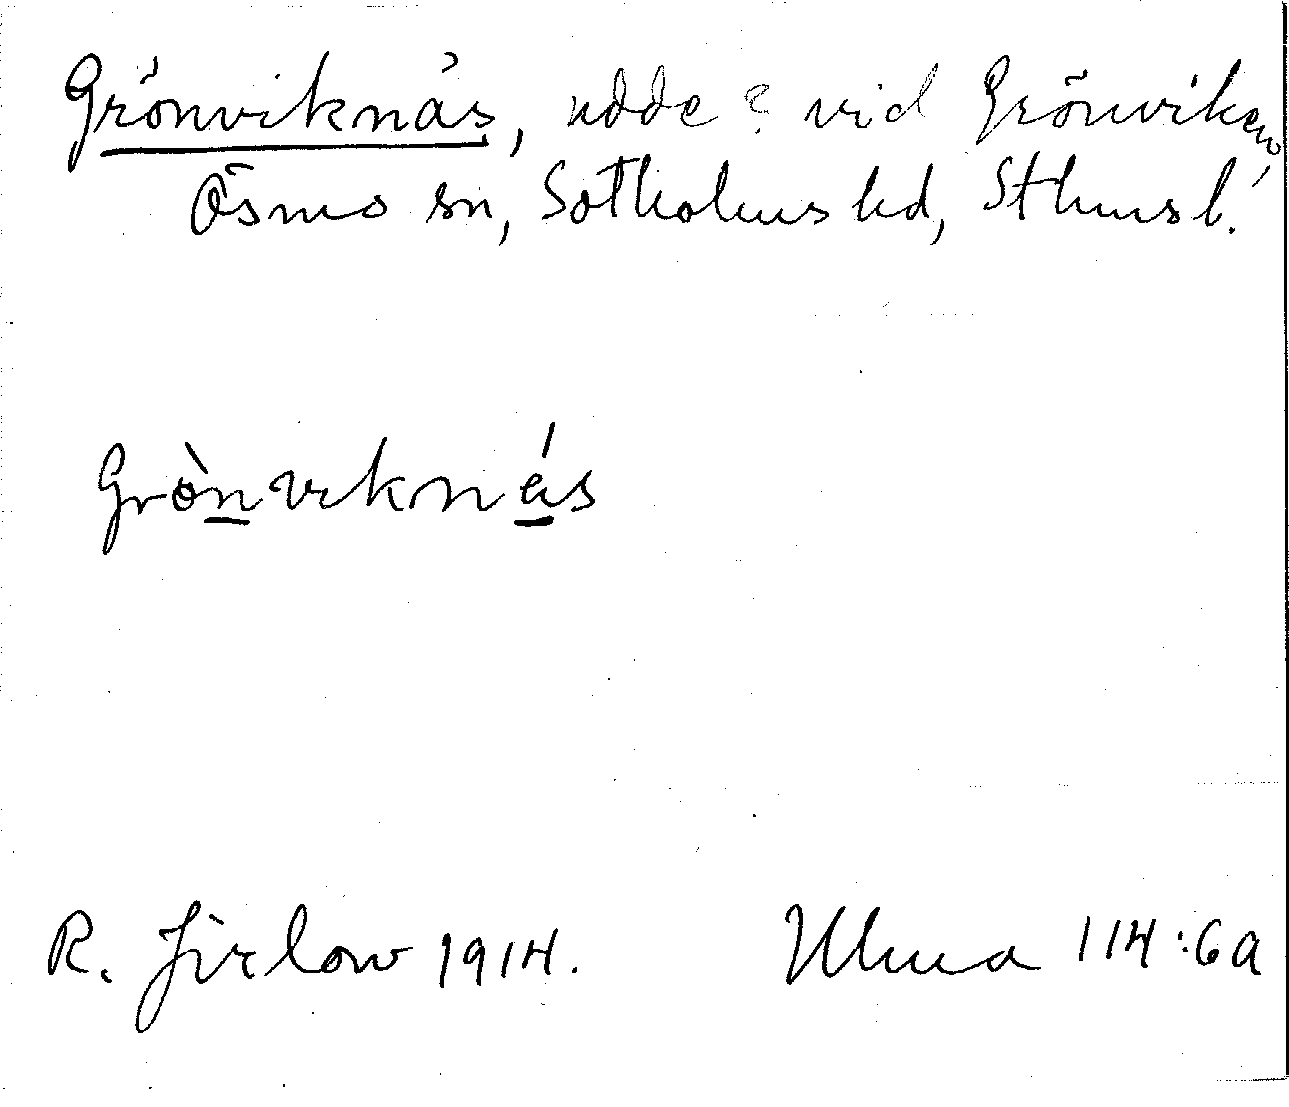 Grönviknäs, udde? vid Grönviken,
Ösmo sn, Sotholms hd, Sthms l.
Grò̱nvikná̱s
R. Jirlow 1914. Ulma 114:6a